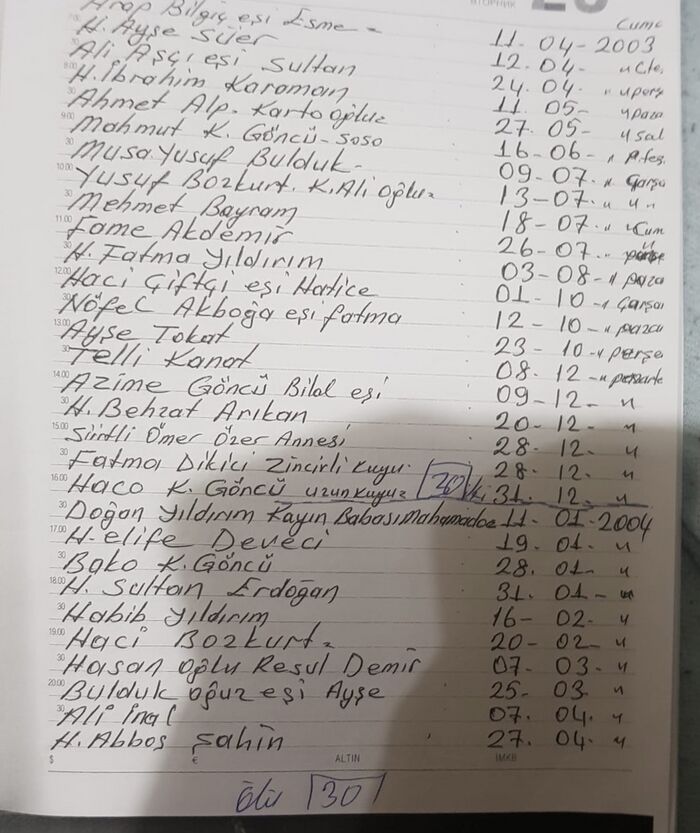 ВТОРНИК
Arap Bilgiç eşi Esme - Cumc
H. Ayşe Süer 11. 04-2003
Ali Aşçı eşi Sultan 12. 04- " Cte.
H. İbrahim Karaman 24. 04- " " perş
Ahmet Alp. Kartoğluz 11. 05- " paza
Mahmut K. Göncü-Soso 27. 05- " sal
Musa. Yusuf Bulduk- 16-06- " P.teş.
Yusuf Bozkurt. K. Ali Oğlu- 09-07- " Çarşa
Mehmet Bayram 13-07. " " "
Fame Akdemir 18-07. " Cum
H. Fatma Yıldırım 26-07. "
Haci Çiftçi eşi Hatice 03-08- " paza
Nöfel Akboğa eşi fatma 01-10- " Çarşa
Ayşe Tokat 12-10- " paza
Telli Kanat 23-10- " perşe
Azime Göncü Bilal eşi 08. 12- "
H. Behzat Arıkan 09-12- "
Siirtli Ömer Özer Annesi 20-12- "
Fatma Dikici Zincirli kuyu. 28-12. "
Haco K. Göncü uzunkuyu 28-12. "
20 ki 31. 12. "
Doğan Yıldırım Kayın Babası Mahamadoe 11-01-2004
H. elife Deveci 19. 01- "
Bako K. Göncü 28. 01- "
H. Sultan Erdoğan 31. 01- "
Habib Yıldırım 16-02. "
Haci Bozkurt- 20-02- "
Hasan oğlu Resul Demir 07-03- "
Bulduk oğuz eşi Ayşe 25-03. "
Ali İnal 07. 04. "
H. Abbas Şahin 27. 04- "
$ € ALTIN İMKB
ölü 30